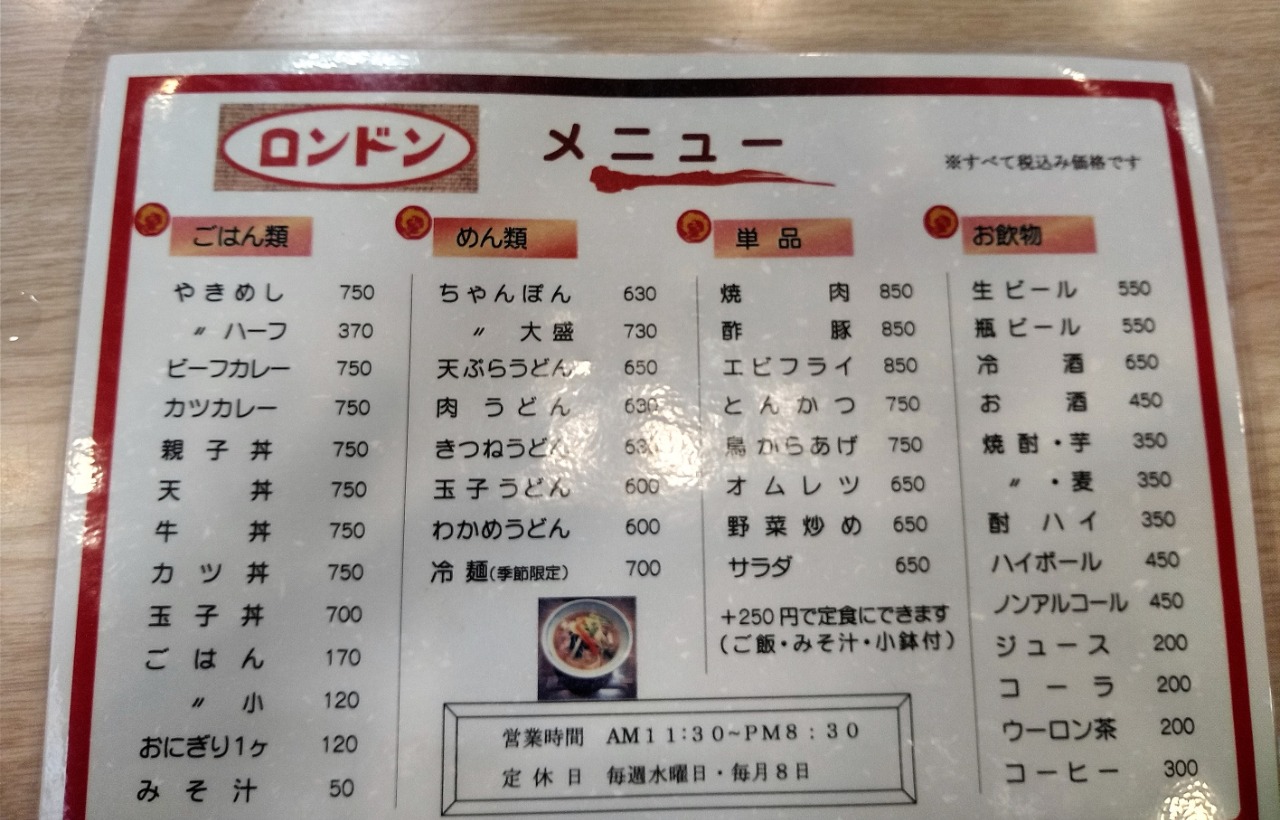 ロンドン
メニュー
※すべて税込み価格です
ごはん類
やきめし 750
〃 ハーフ 370
ビーフカレー 750
カツカレー 750
親子丼 750
天丼 750
牛丼 750
カツ丼 750
玉子丼 700
ごはん 170
〃 小 120
おにぎり1ヶ 120
みそ汁 50
めん類
ちゃんぽん 630
〃 大盛 730
天ぷらうどん 650
肉うどん 630
きつねうどん 630
玉子うどん 600
わかめうどん 600
冷麺(季節限定) 700
単品
焼肉 850
酢豚 850
エビフライ 850
とんかつ 750
鳥からあげ 750
オムレツ 650
野菜炒め 650
サラダ 650
+250円で定食にできます
(ご飯・みそ汁・小鉢付)
お飲物
生ビール 550
瓶ビール 550
冷酒 650
お酒 450
焼酎・芋 350
〃・麦 350
酎ハイ 350
ハイボール 450
ノンアルコール 450
ジュース 200
コーラ 200
ウーロン茶 200
コーヒー 300
営業時間 AM11:30~PM8:30
定休日 毎週水曜日・毎月8日